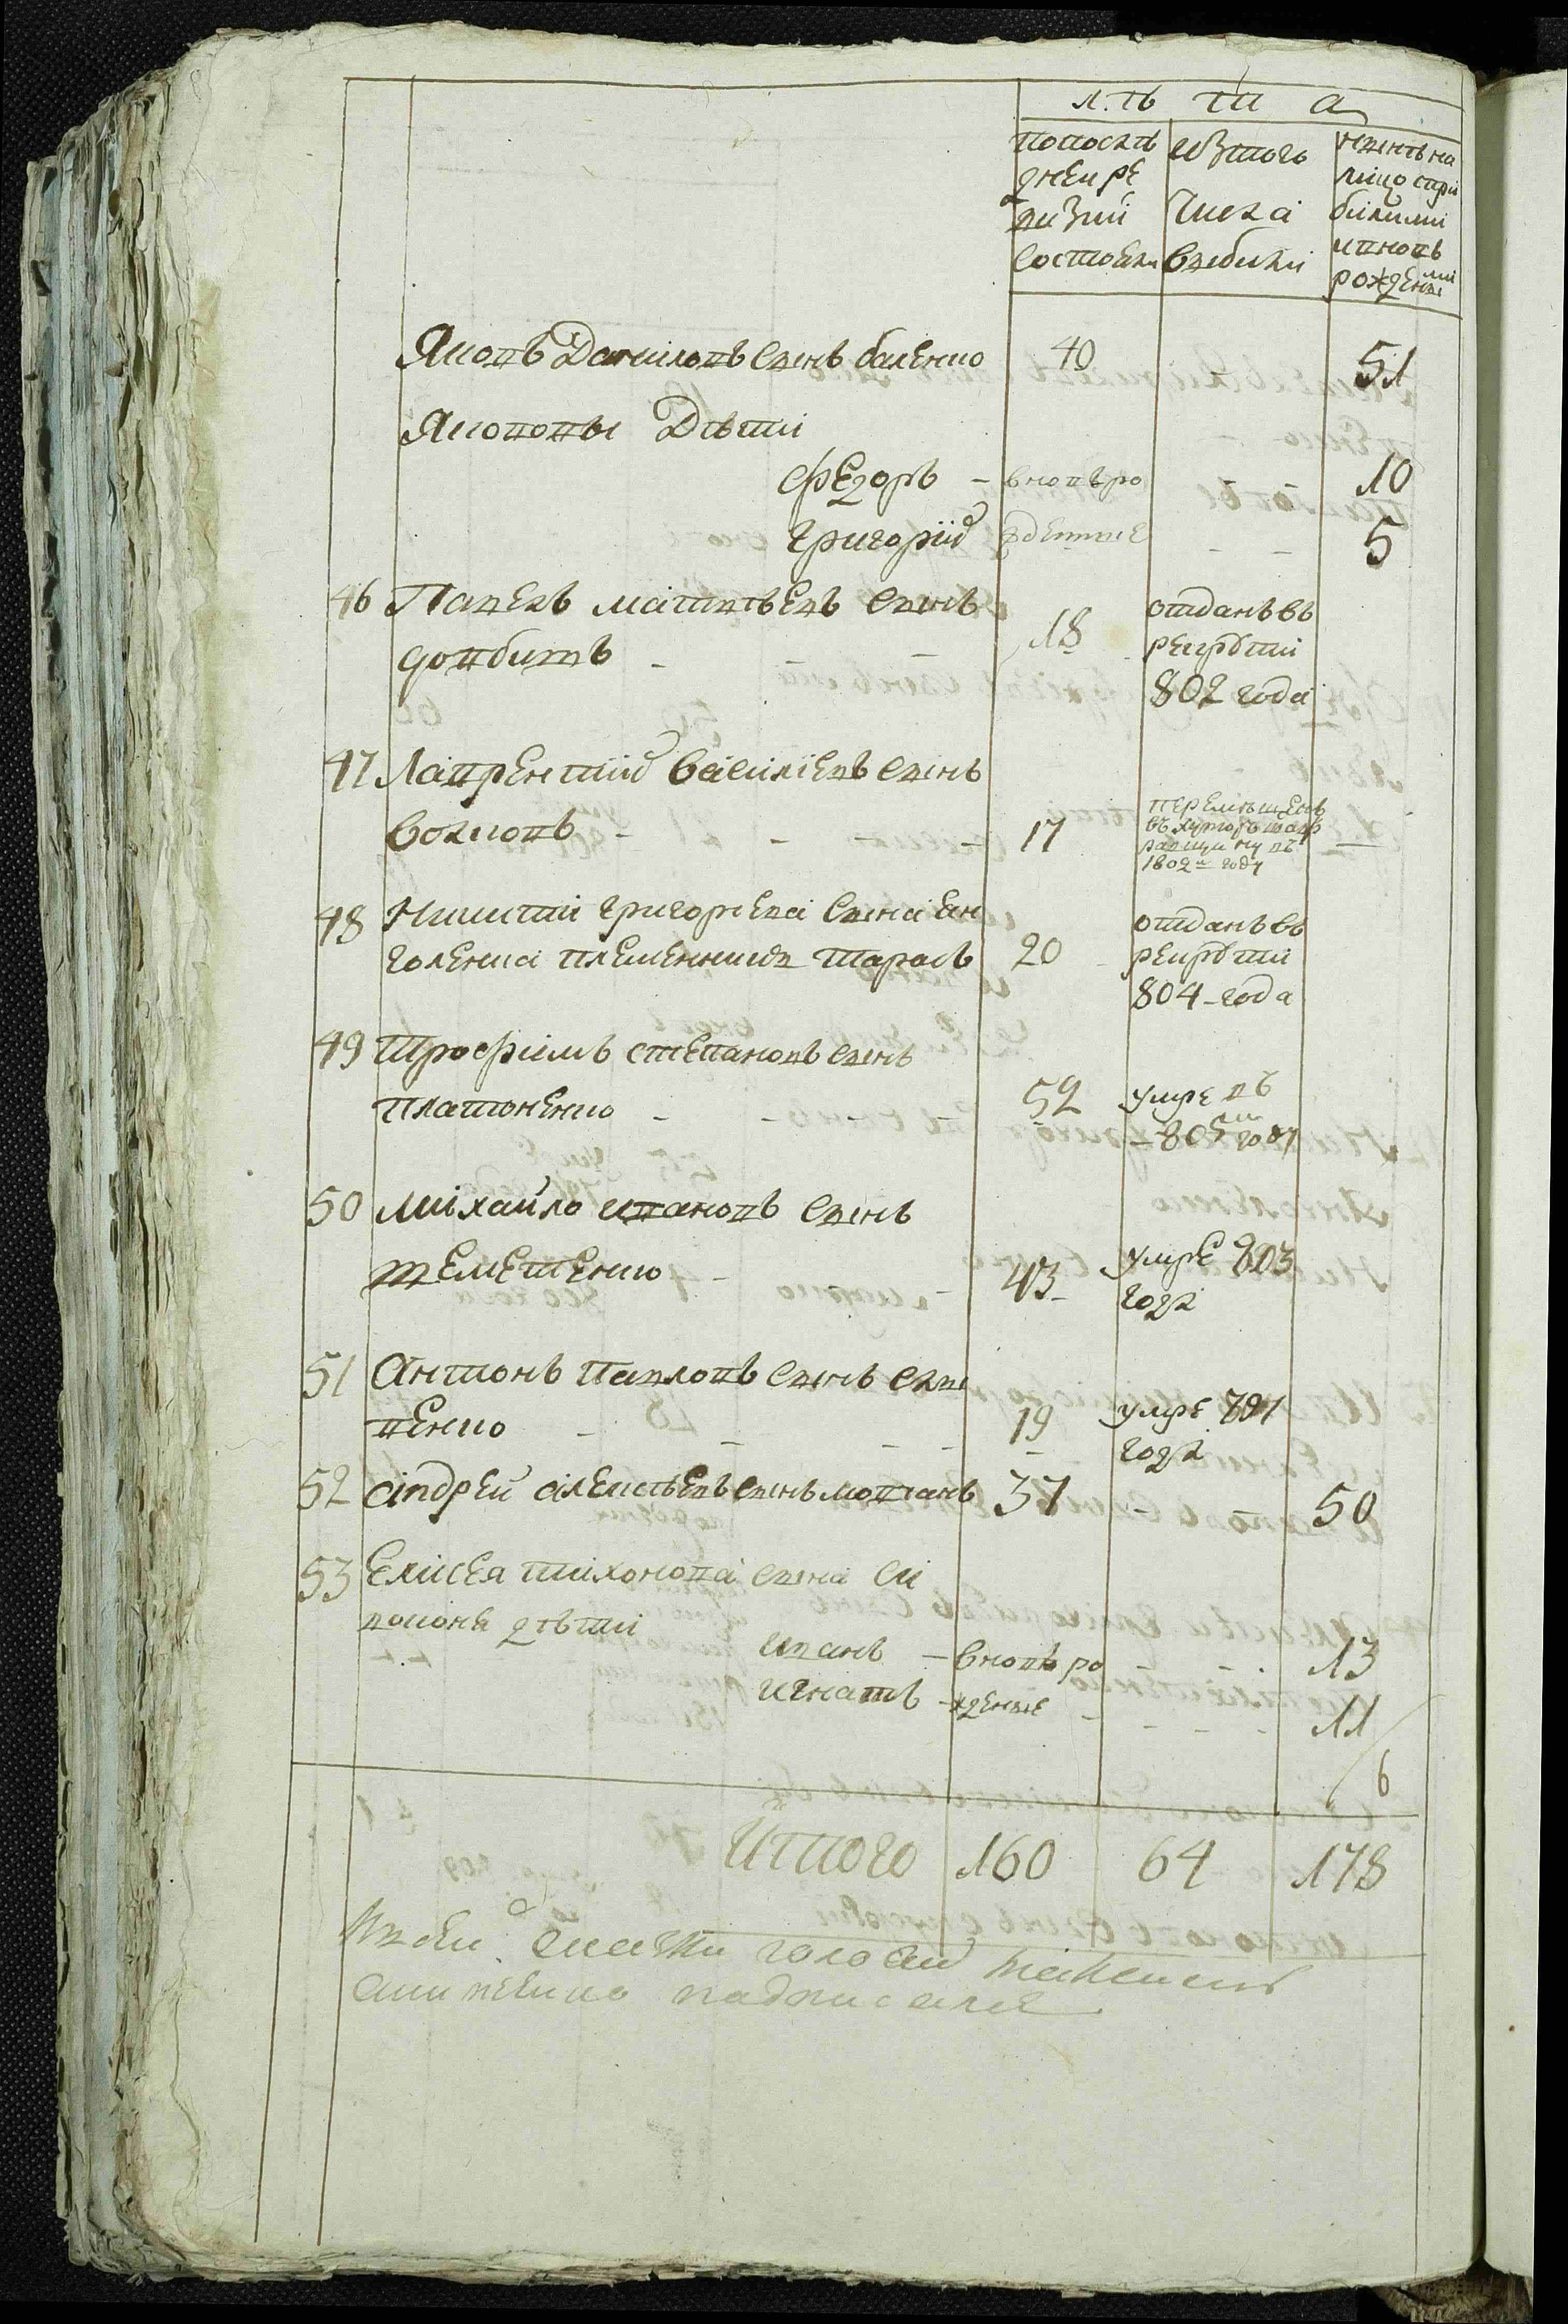 лѣта
попослѣ
дней ре
визии
состояли
изтого
числа
выбыли
нынѣ на
лицо спри
былыми
ивновь
рожденными
Яковъ Даниловъ сынъ баленко 40 - 51
Яковоны Дѣти
Федоръ - вновь ро 10
Григорий жденные - - 5
46 Павелъ матвѣевъ сынъ
довбишъ - - - 18 отданъ въ
рекруты
802 года
47 Лаврентий василіевъ сынъ
волковъ - - - - 17 перемѣщенъ
въ хуторъ
1802го году -
48 Никиты григориева сына ен
голенка племенникъ тарасъ 20 отданъ въ
рекруты
804 года
49 Трофимъ степановъ сынъ
платоненко - - 52 умре въ
805м году
50 михайло ивановъ сынъ
темешенко - - 43 умре 803
года
51 Антонъ павловъ сынъ слы
венко - - - - 19 умре
года
52 андрей алексѣевъ сынъ мовчанъ 37 - 50
53 Елисея тихонова сына си
воконя дѣти
иванъ - вновь ро - 13
игнатъ - жденные - - - - 11
6
Итого 160 64 178
сказки голова
подписалсе